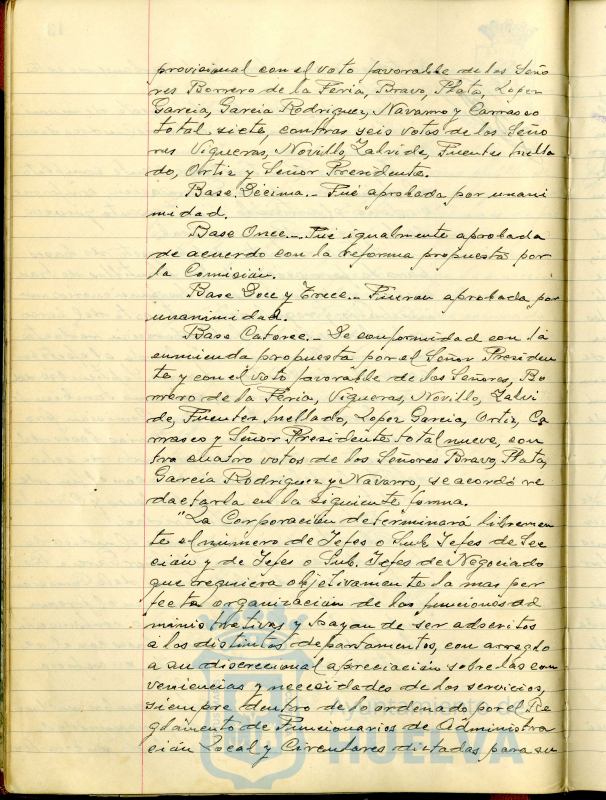 provisional con el voto favorable de los Seño
res Borrero de la Feria, Bravo, Plata, Lopez
Garcia, Garcia Rodriguez, Navarro y Carrasco
total siete, contras seis votos de los Seño
res Vigueras, Novillo, Zalvide, Fuentes Mella
do, Ortiz y Señor Presidente.
Base Décima.- Fué aprobada por unani
midad.
Base Once.- Fué igualmente aprobada
de acuerdo con la reforma propuesta por
la Comisión.
Base Doce y Trece.- Fueron aprobada por
unanimidad.
Base Catorce.- De conformidad con la
enmienda propuesta por el Señor Presiden
te y con el voto favorable de los Señores, Bo
rrero de la Feria, Vigueras, Novillo, Zalvi
de, Fuentes Mellado, Lopez Garcia, Ortiz, Ca
rrasco y Señor Presidente total nueve, con
tra cuatro votos de los Señores Bravo, Plata,
Garcia Rodriguez y Navarro, se acordó re
dactarla en la siguiente forma.
"La Corporación determinará libremen
te el número de Jefes o Sub. Jefes de Sec
ción y de Jefes o Sub. Jefes de Negociado
que requiera objetivamente la mas per
fecta organización de las funciones ad
ministrativas y hayan de ser adscritos
a los distintos departamentos, con arreglo
a su discrecional apreciación sobre las con
veniencias y necesidades de los servicios,
siempre dentro de lo ordenado por el Re
glamento de Funcionarios de Administra
ción Local y Circulares dictadas para su
Ayuntamiento
HUELVA